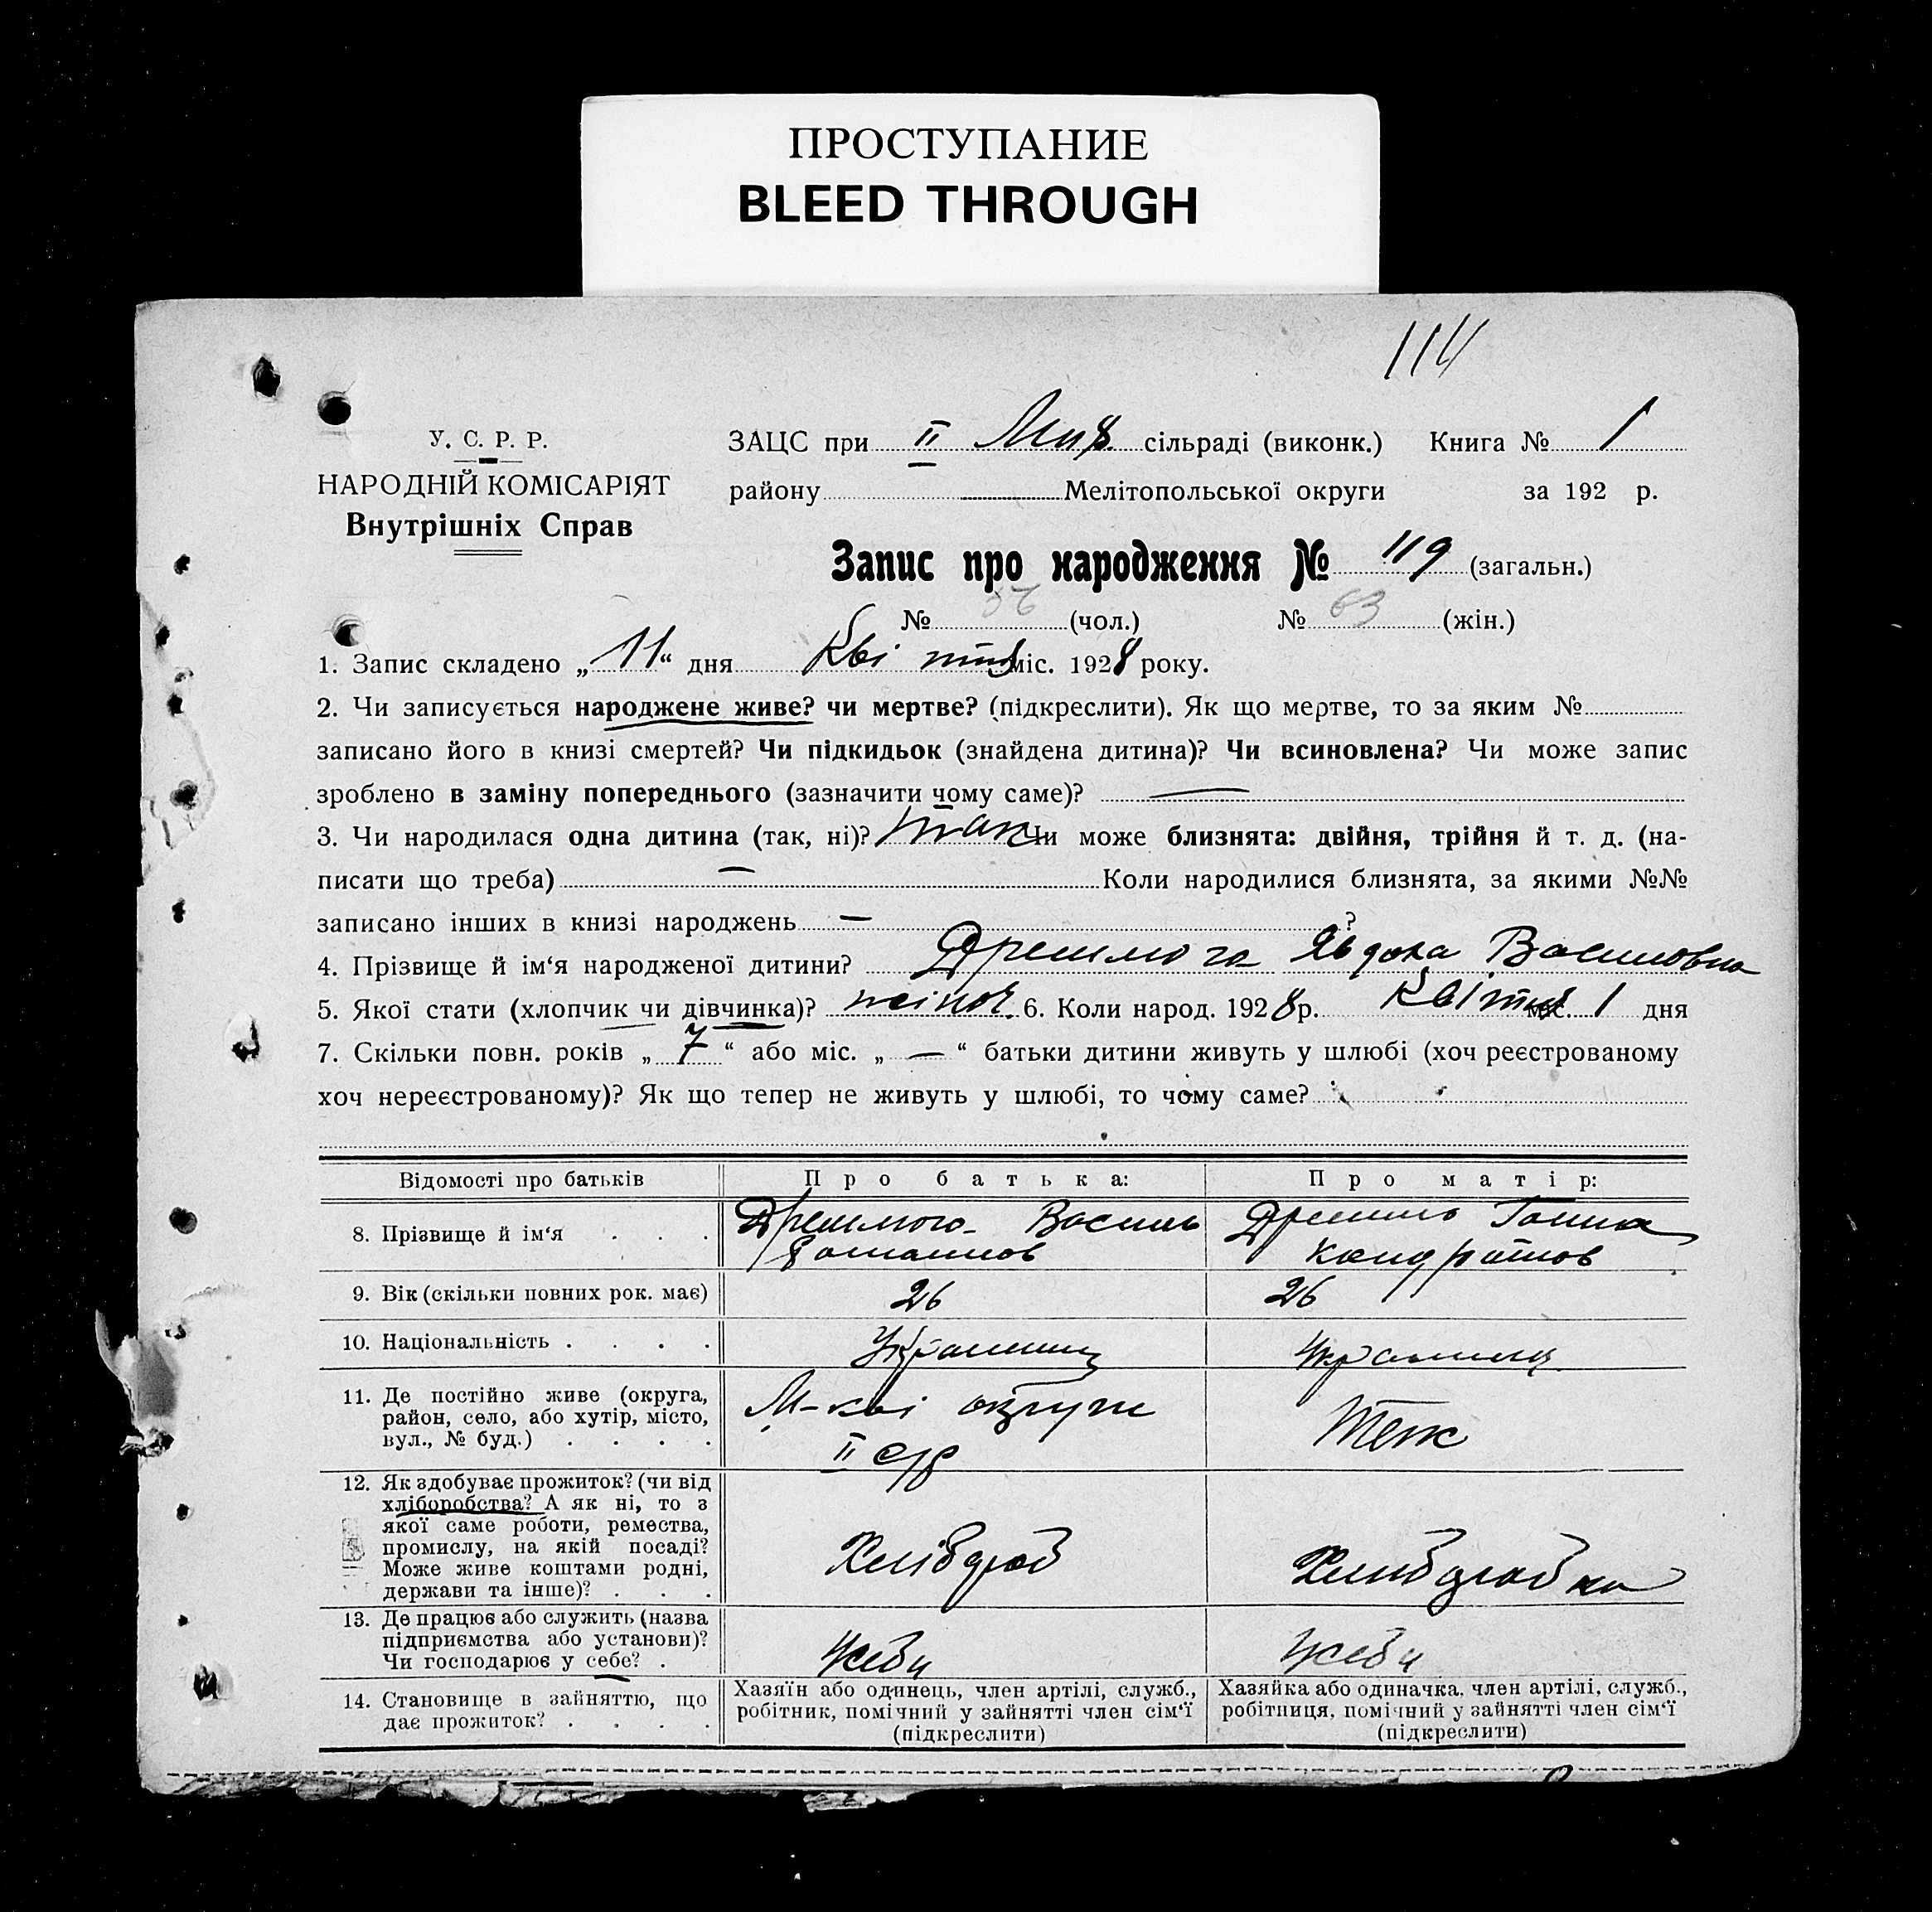 ПРОСТУПАНИЕ
BLEED THROUGH
114
У. С. Р. Р.
НАРОДНІЙ КОМІСАРІЯТ
Внутрішніх Справ
ЗАЦС при II сільраді (виконк.) Книга № 1
району Мелітопольської округи за 192 р.
Запис про народження № 119 (загальн.)
№ 56 (чол.) № 63 (жін.)
1. Запис складено „ 11 “ дня Квітня міс. 1928 року.
2. Чи записується народжене живе? чи мертве? (підкреслити). Як що мертве, то за яким №
записано його в книзі смертей? Чи підкидьок (знайдена дитина)? Чи всиновлена? Чи може запис
зроблено в заміну попереднього (зазначити чому саме)? —
3. Чи народилася одна дитина (так, ні)? так Чи може близнята: двійня, трійня й т. д. (на-
писати що треба) — Коли народилися близнята, за якими №№
записано інших в книзі народжень — ?
4. Прізвище й ім‘я народженої дитини? Явдоха Василовна
5. Якої стати (хлопчик чи дівчинка)? жіноч. 6. Коли народ. 1928 р. Квітня міс. 1 дня
7. Скільки повн. років „ 7 “ або міс. „ — “ батьки дитини живуть у шлюбі (хоч реєстрованому
хоч нереєстрованому)? Як що тепер не живуть у шлюбі, то чому саме?
Відомості про батьків Про батька: Про матір:
8. Прізвище й ім‘я . . . Василь Ганна
Кондратов
9. Вік (скільки повних рок. має) 26 26
10. Національність . . . . Українець Українец
11. Де постійно живе (округа, район, село, або хутір, місто, вул., № буд.) . . . . М-кої округи
II с/р
Теж
12. Як здобуває прожиток? (чи від хліборобства? А як ні, то з якої саме роботи, ремества, промислу, на якій посаді? Може живе коштами родні, держави та інше)? . . . Хлібороб Хлиборобка
13. Де працює або служить (назва підприємства або установи)? Чи господарює у себе? . Усебе Усебе
14. Становище в зайняттю, що дає прожиток? . . . . Хазяїн або одинець, член артілі, служб., робітник, помічний у зайнятті член сім‘ї (підкреслити) Хазяйка або одиначка, член артілі, служб., робітниця, помічний у зайнятті член сім‘ї (підкреслити)